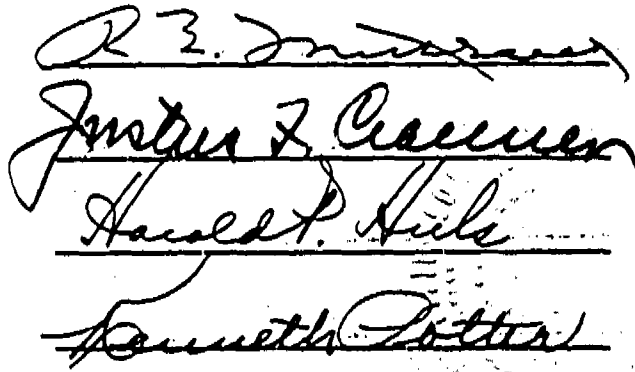 R. E.
Justus F. Craemer
Harold P. Huls
Kenneth Potter